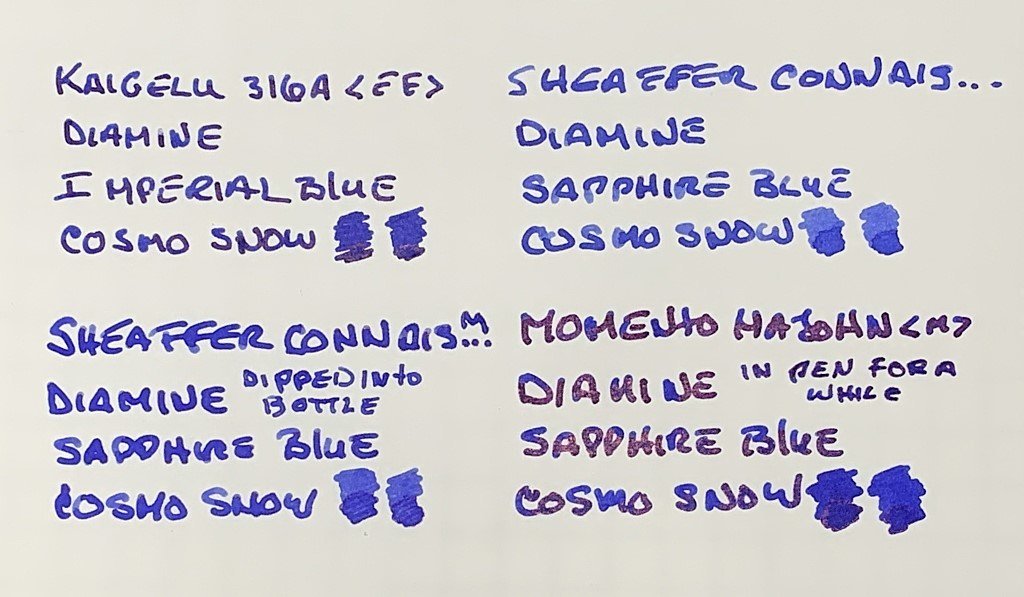 KAIGELU 316A <EF>
DIAMINE
IMPERIAL BLUE
COSMO SNOW
SHEAFFER CONNAIS...
DIAMINE
SAPPHIRE BLUE
COSMO SNOW
SHEAFFER CONNAIS... M
DIAMINE DIPPED INTO
BOTTLE
SAPPHIRE BLUE
COSMO SNOW
MOMENTO MAJOHN <M>
DIAMINE IN PEN FOR A
WHILE
SAPPHIRE BLUE
COSMO SNOW